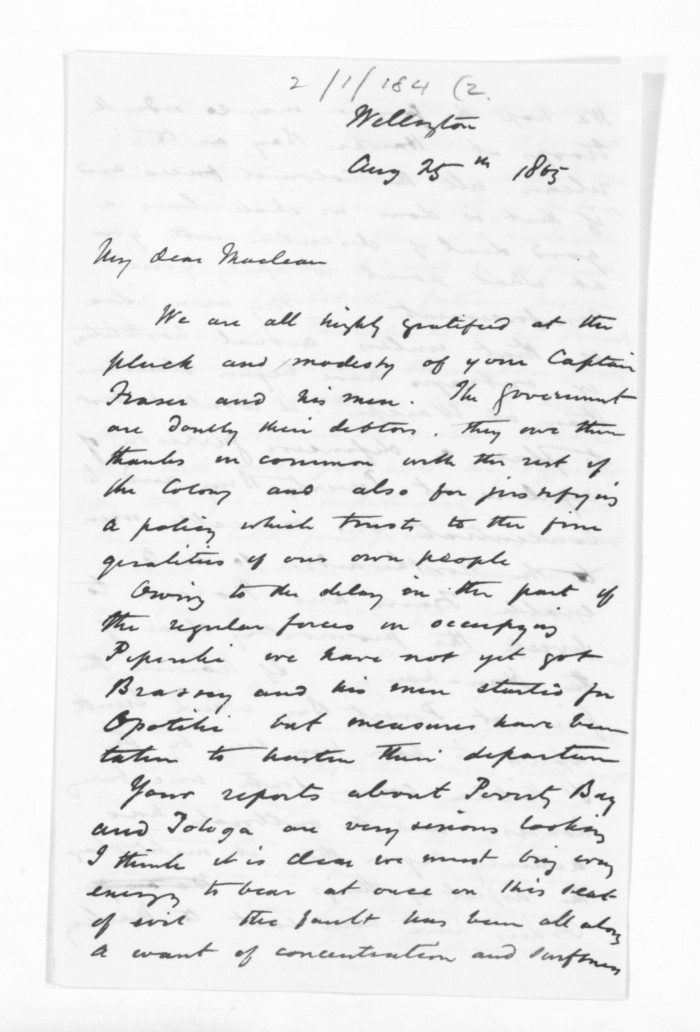 2/1/184 (2.
Wellington
Aug 25th 1865
My dear Maclean
We are all highly gratified at the
pluck and modesty of your Captain
Fraser and his men. The Government
are doubly their debtors. they owe them
thanks in common with the rest of
the Colony and also for justifying
a policy which trusts to the fine
qualities of our own people
Owing to the delay in the part of
the regular forces in occupying
Pipiriki we have not yet got
Brassey and his men started for
Opotiki but measures have been
taken to hasten their departure
Your reports about Poverty Bay
and Tologa are very serious looking
I think it is clear we must bring every
energy to bear at once on this seat
of evil the fault has been all along
a want of concentration and swiftness